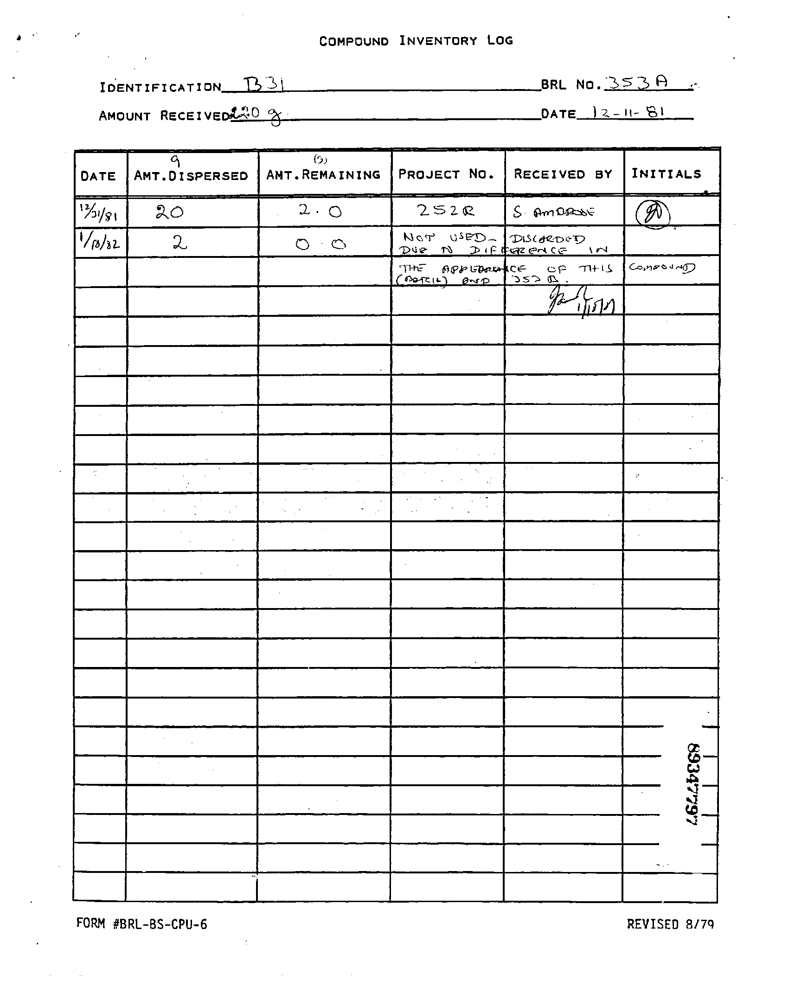 COMPOUND INVENTORY LOG
IDENTIFICATION B31 BRL NO. 353A
AMOUNT RECEIVED 22.0 g DATE 12-11-81
DATE g AMT. DISPERSED (g) AMT. REMAINING PROJECT NO. RECEIVED BY INITIALS
12/31/81 20 2.0 252R S. AMBROSE
2 0.0 NOT USED - DISCARDED
DUE TO DIFFERENCE IN
THE APPEARANCE OF THIS COMPOUND
(BATCH) AND
89347797
FORM #BRL-BS-CPU-6 REVISED 8/79